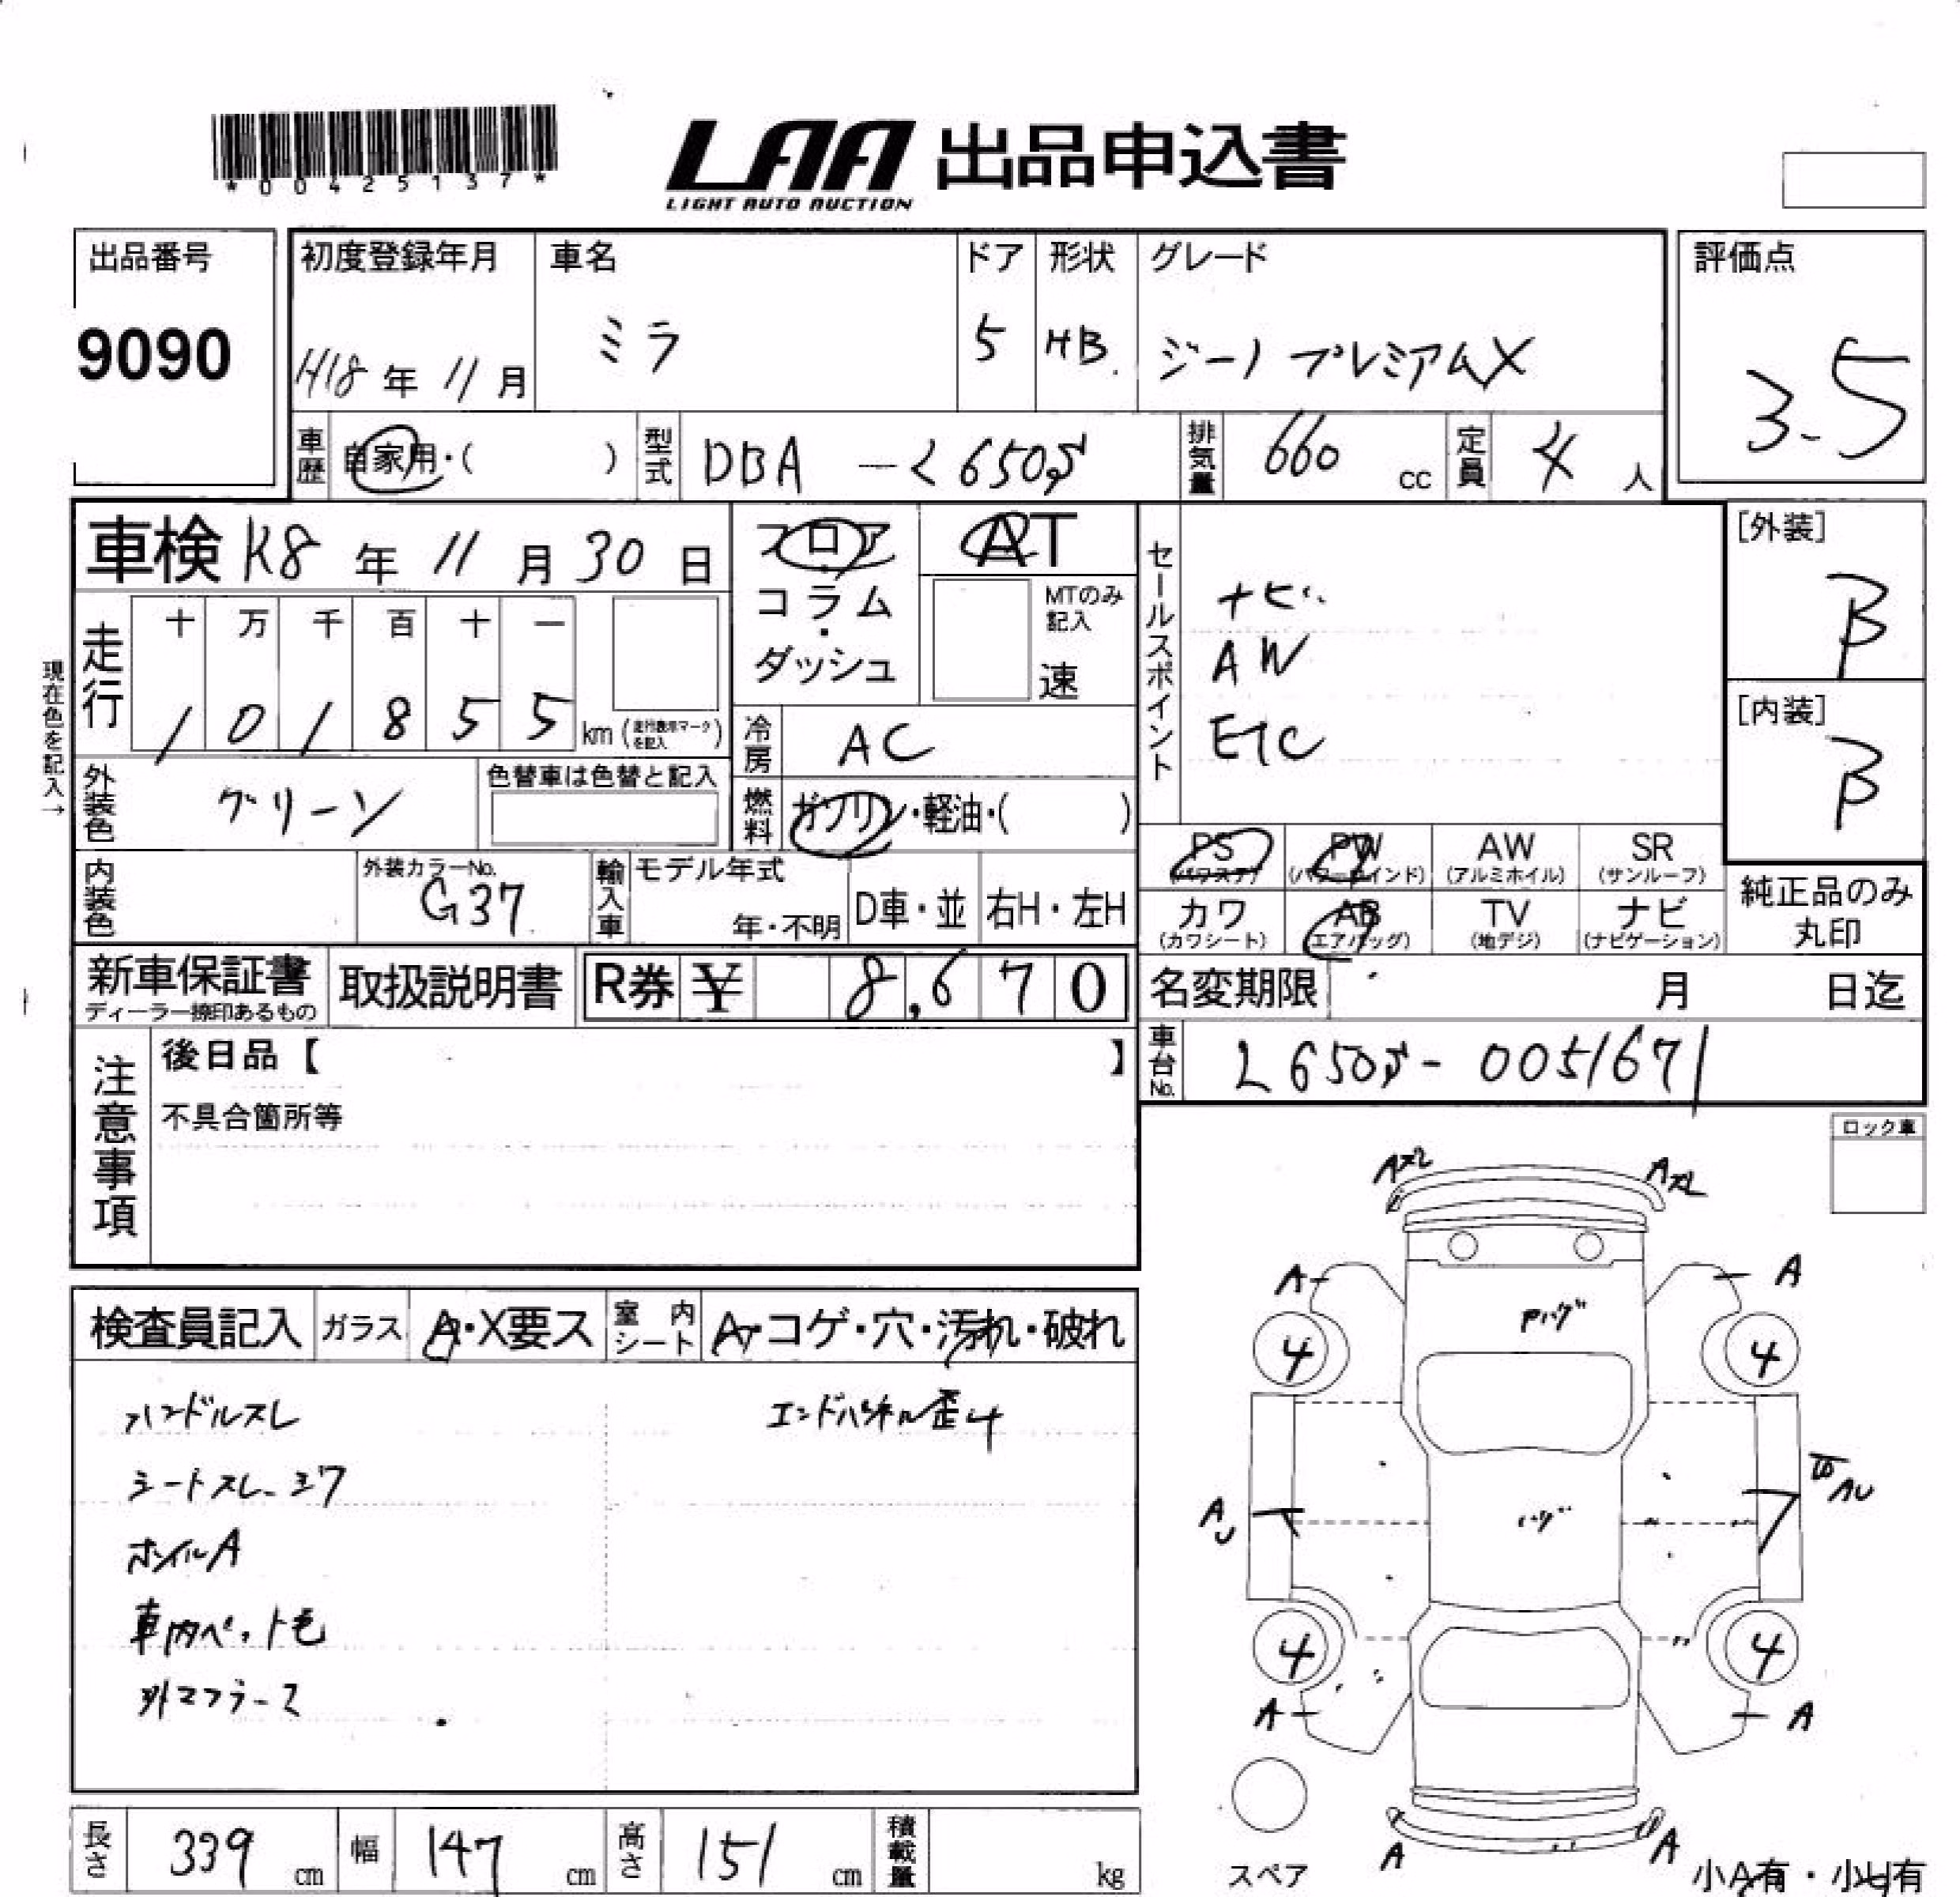 *00425137*
LAA 出品申込書
LIGHT AUTO AUCTION
出品番号
9090
初度登録年月
H18 年 11 月
車名
ミラ
ドア
5
形状
HB.
グレード
ジーノ プレミアムX
評価点
3.5
車歴 自家用・( )
型式 DBA - L650S
排気量 660 cc
定員 4 人
車検 R8 年 11 月 30 日
フロア
・
コラム
・
ダッシュ
AT
MTのみ
記入
速
セールスポイント
ナビ
AW
ETC
[外装]
B
[内装]
B
現在色を記入→
走行
十 万 千 百 十 一
1 0 1 8 5 5 km (走行表示マークを記入)
冷房 AC
外装色 グリーン
色替車は色替と記入
燃料 ガソリン・軽油・( )
内装色
外装カラーNo.
G37
輸入車
モデル年式
年・不明
D車・並
右H・左H
PS
(パワステ)
PW
(パワーウインド)
AW
(アルミホイル)
SR
(サンルーフ)
カワ
(カワシート)
AB
(エアバッグ)
TV
(地デジ)
ナビ
(ナビゲーション)
純正品のみ
丸印
新車保証書
ディーラー捺印あるもの
取扱説明書
R券 ¥ 8,670
名変期限 月 日迄
車台No. L650S- 0051671
注意事項
後日品【 】
不具合箇所等
ロック車
検査員記入 ガラス A・X要ス 室内シート A・コゲ・穴・汚れ・破れ
ハンドルスレ
エンドパネル歪4
シートスレ シワ
ホイルA
車内ペット毛
外マフラース
AXL
AXL
A
A
Aハゲ
4
4
ハゲ
AU
AU
4
4
A
A
A
A
スペア
小A有・小U有
長さ 339 cm
幅 147 cm
高さ 151 cm
積載量 kg